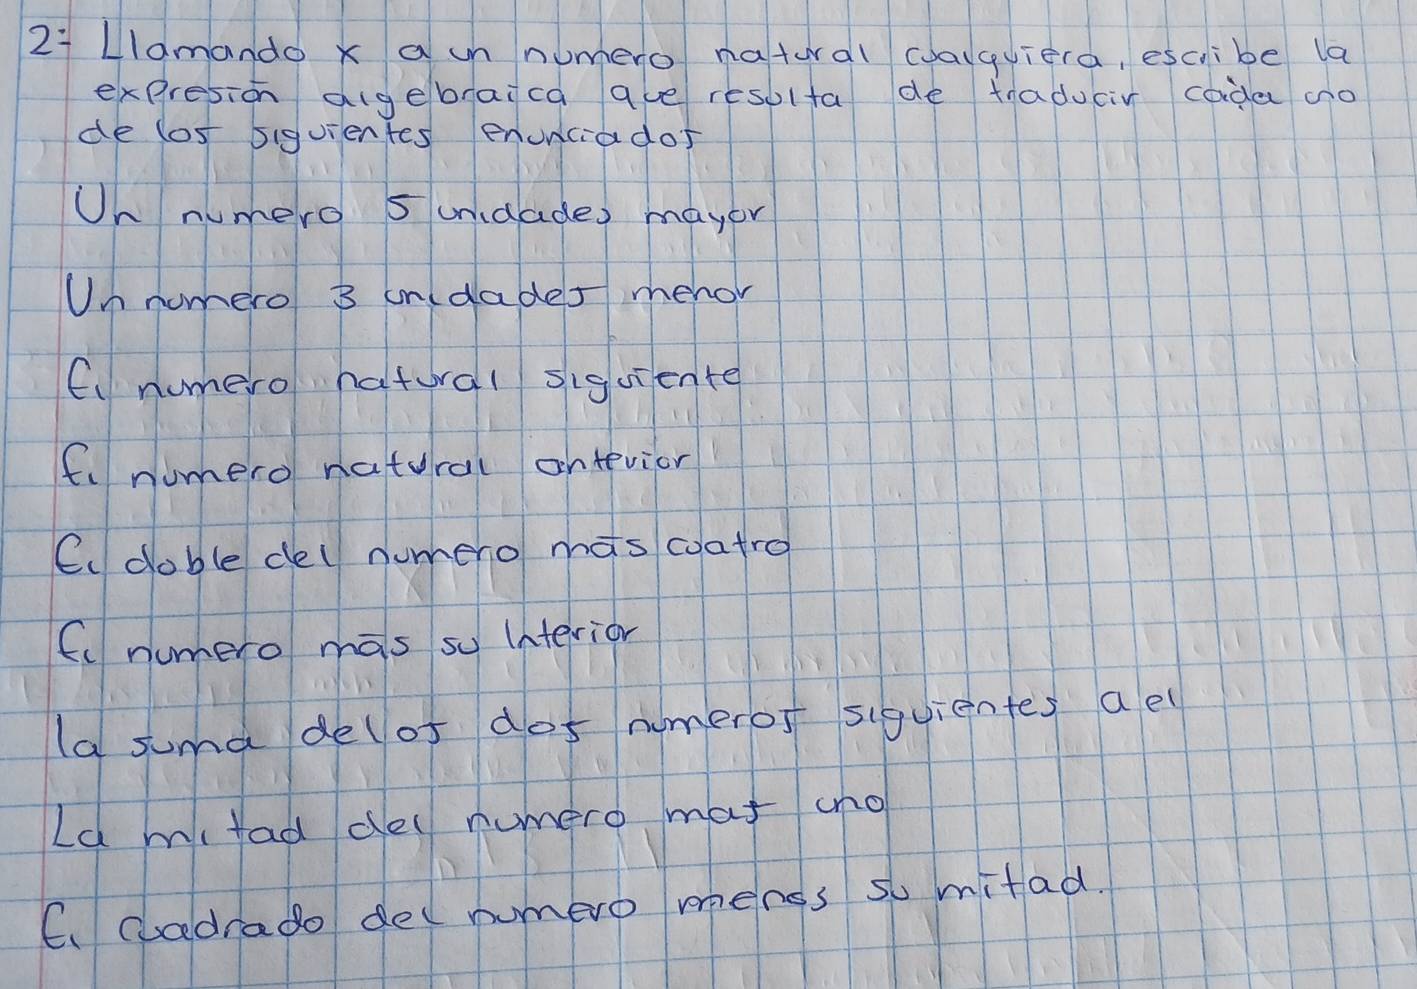 2= Llamando x a un numero natural cualquiera, escribe la
expresión algebraica que resulta de traducir cada uno
de los siguientes enunciados
Un numero 5 unidades mayor
Un numero 3 unidades menor
El numero natural siguiente
El numero natural anterior
El doble del numero más cuatro
El numero más su interior
la suma de los dos numeros siguientes a el
La mitad del numero mas uno
El cuadrado del numero menos su mitad.